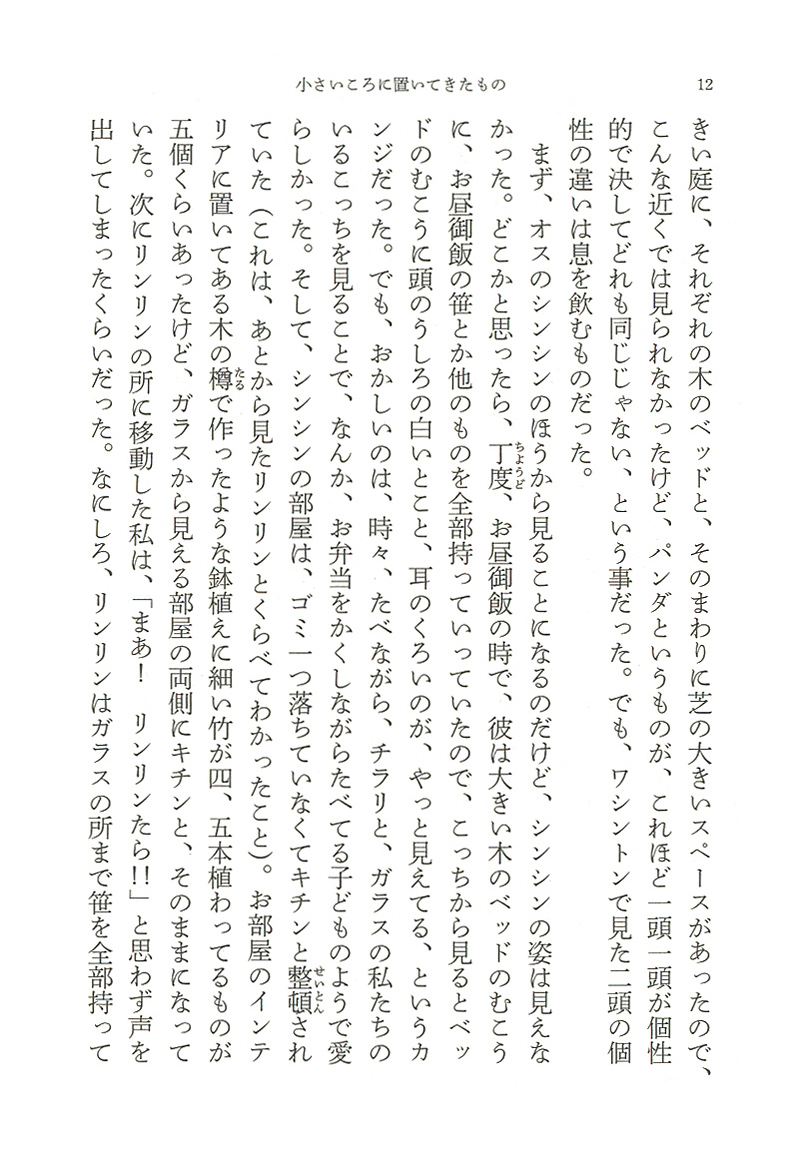 小さいころに置いてきたもの
12
きい庭に、それぞれの木のベッドと、そのまわりに芝の大きいスペースがあったので、
こんな近くでは見られなかったけど、パンダというものが、これほど一頭一頭が個性
的で決してどれも同じじゃない、という事だった。でも、ワシントンで見た二頭の個
性の違いは息を飲むものだった。
まず、オスのシンシンのほうから見ることになるのだけど、シンシンの姿は見えな
かった。どこかと思ったら、丁度、お昼御飯の時で、彼は大きい木のベッドのむこう
ちょうど
に、お昼御飯の笹とか他のものを全部持っていっていたので、こっちから見るとベッ
ドのむこうに頭のうしろの白いとこと、耳のくろいのが、やっと見えてる、というカ
ンジだった。でも、おかしいのは、時々、たべながら、チラリと、ガラスの私たちの
いるこっちを見ることで、なんか、お弁当をかくしながらたべてる子どものようで愛
らしかった。そして、シンシンの部屋は、ゴミ一つ落ちていなくてキチンと整頓され
せいとん
ていた（これは、あとから見たリンリンとくらべてわかったこと）。お部屋のインテ
リアに置いてある木の樽で作ったような鉢植えに細い竹が四、五本植わってるものが
たる
五個くらいあったけど、ガラスから見える部屋の両側にキチンと、そのままになって
いた。次にリンリンの所に移動した私は、「まあ！　リンリンたら!!」と思わず声を
出してしまったくらいだった。なにしろ、リンリンはガラスの所まで笹を全部持って